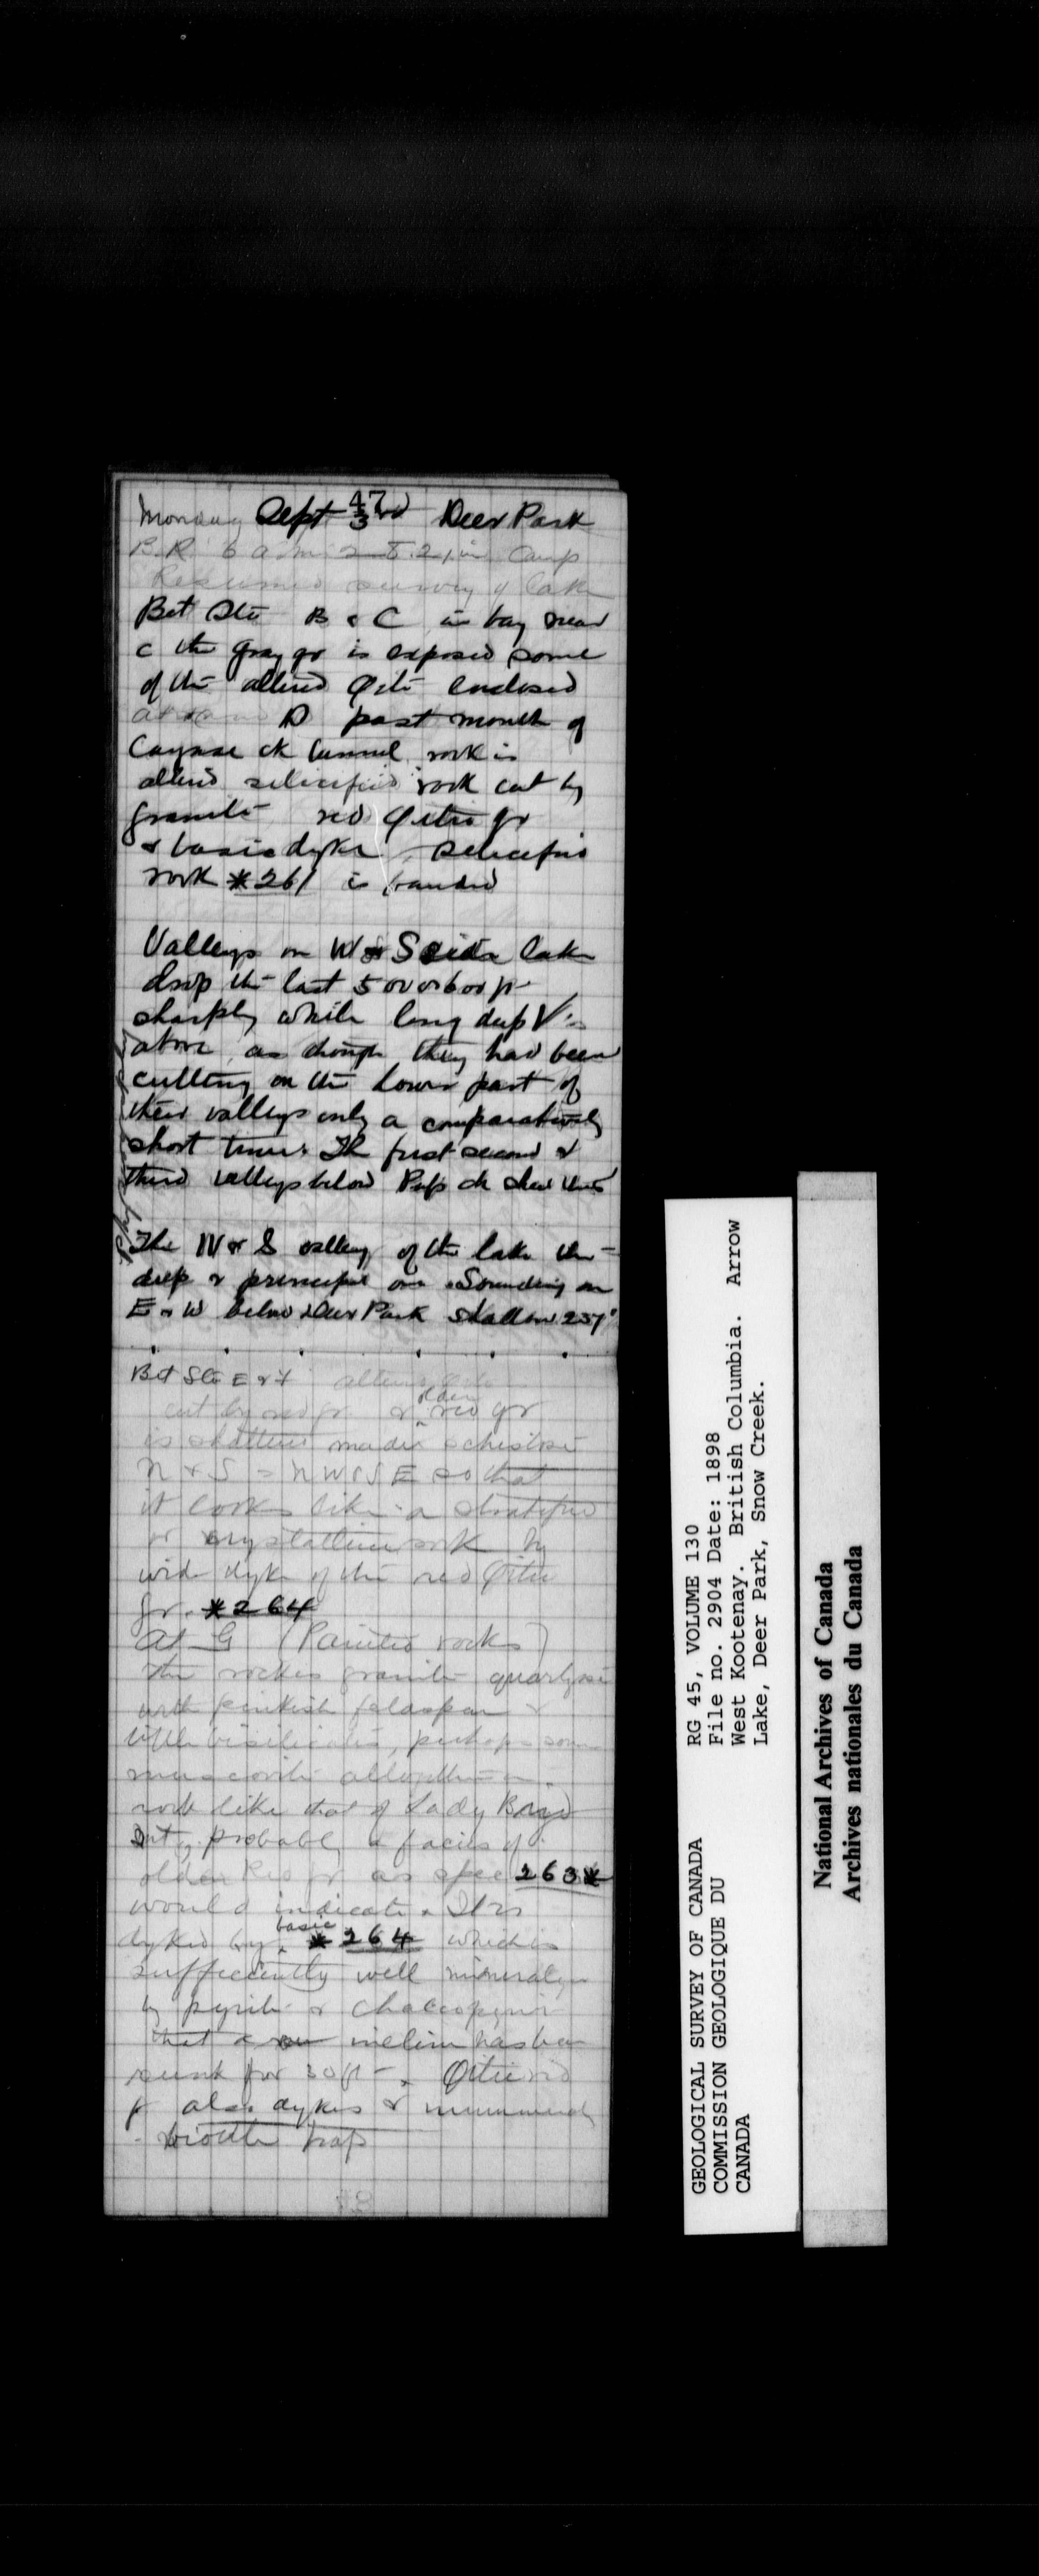 47
Monday Sept 3rd Deer Park
B.R. 6 a.m. 28.21 in Camp
Resumed survey of lake
Bet Sta B & C in bay near
C the gray gr is exposed some
of the altered enclosed
at D past mouth of
Cayuse ck tunnel rock is
altered silicified rock cut by
granite red gr
& basic dyke silicified
rock *261 is banded
Valleys on W & S side lake
drop the last 500 or 600 ft
sharply while long deep V's
above, as though they had been
cutting on the lower part of
their valleys only a comparatively
short time. The first second &
third valleys below ck shew this
The N & S valley of the lake the
deep & principal one. Sounding on
E & W below Deer Park shallow 257'
Bet Sta E & F altered
cut by red gr. & older red gr
is shattered made schistose
N & S = NW & SE so that
it looks like a stratified
or crystalline rock by
wide dyke of the red
gr. *264
At G (Painted rocks)
the rock is granite quartzose
with pinkish feldspar &
little bisilicates, perhaps some
muscovite altogether a
rock like that of Lady
but probably a facies of
older Red gr as spec 263*
would indicate. It is
dyked by basic *264 which is
sufficiently well mineralized
by pyrite & chalcopyrite
that a incline has been
sunk for 30 ft. red
gr also dykes &
biotite trap
RG 45, VOLUME 130
File no. 2904 Date: 1898
West Kootenay. British Columbia. Arrow
Lake, Deer Park, Snow Creek.
GEOLOGICAL SURVEY OF CANADA
COMMISSION GEOLOGIQUE DU
CANADA
National Archives of Canada
Archives nationales du Canada